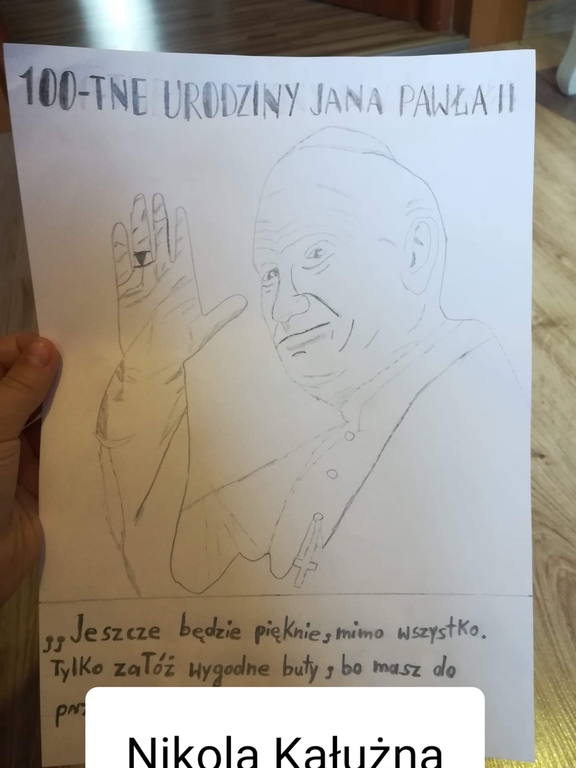 100-TNE URODZINY JANA PAWŁA II
„Jeszcze będzie pięknie, mimo wszystko.
Tylko załóż wygodne buty, bo masz do
Nikola Kałużna